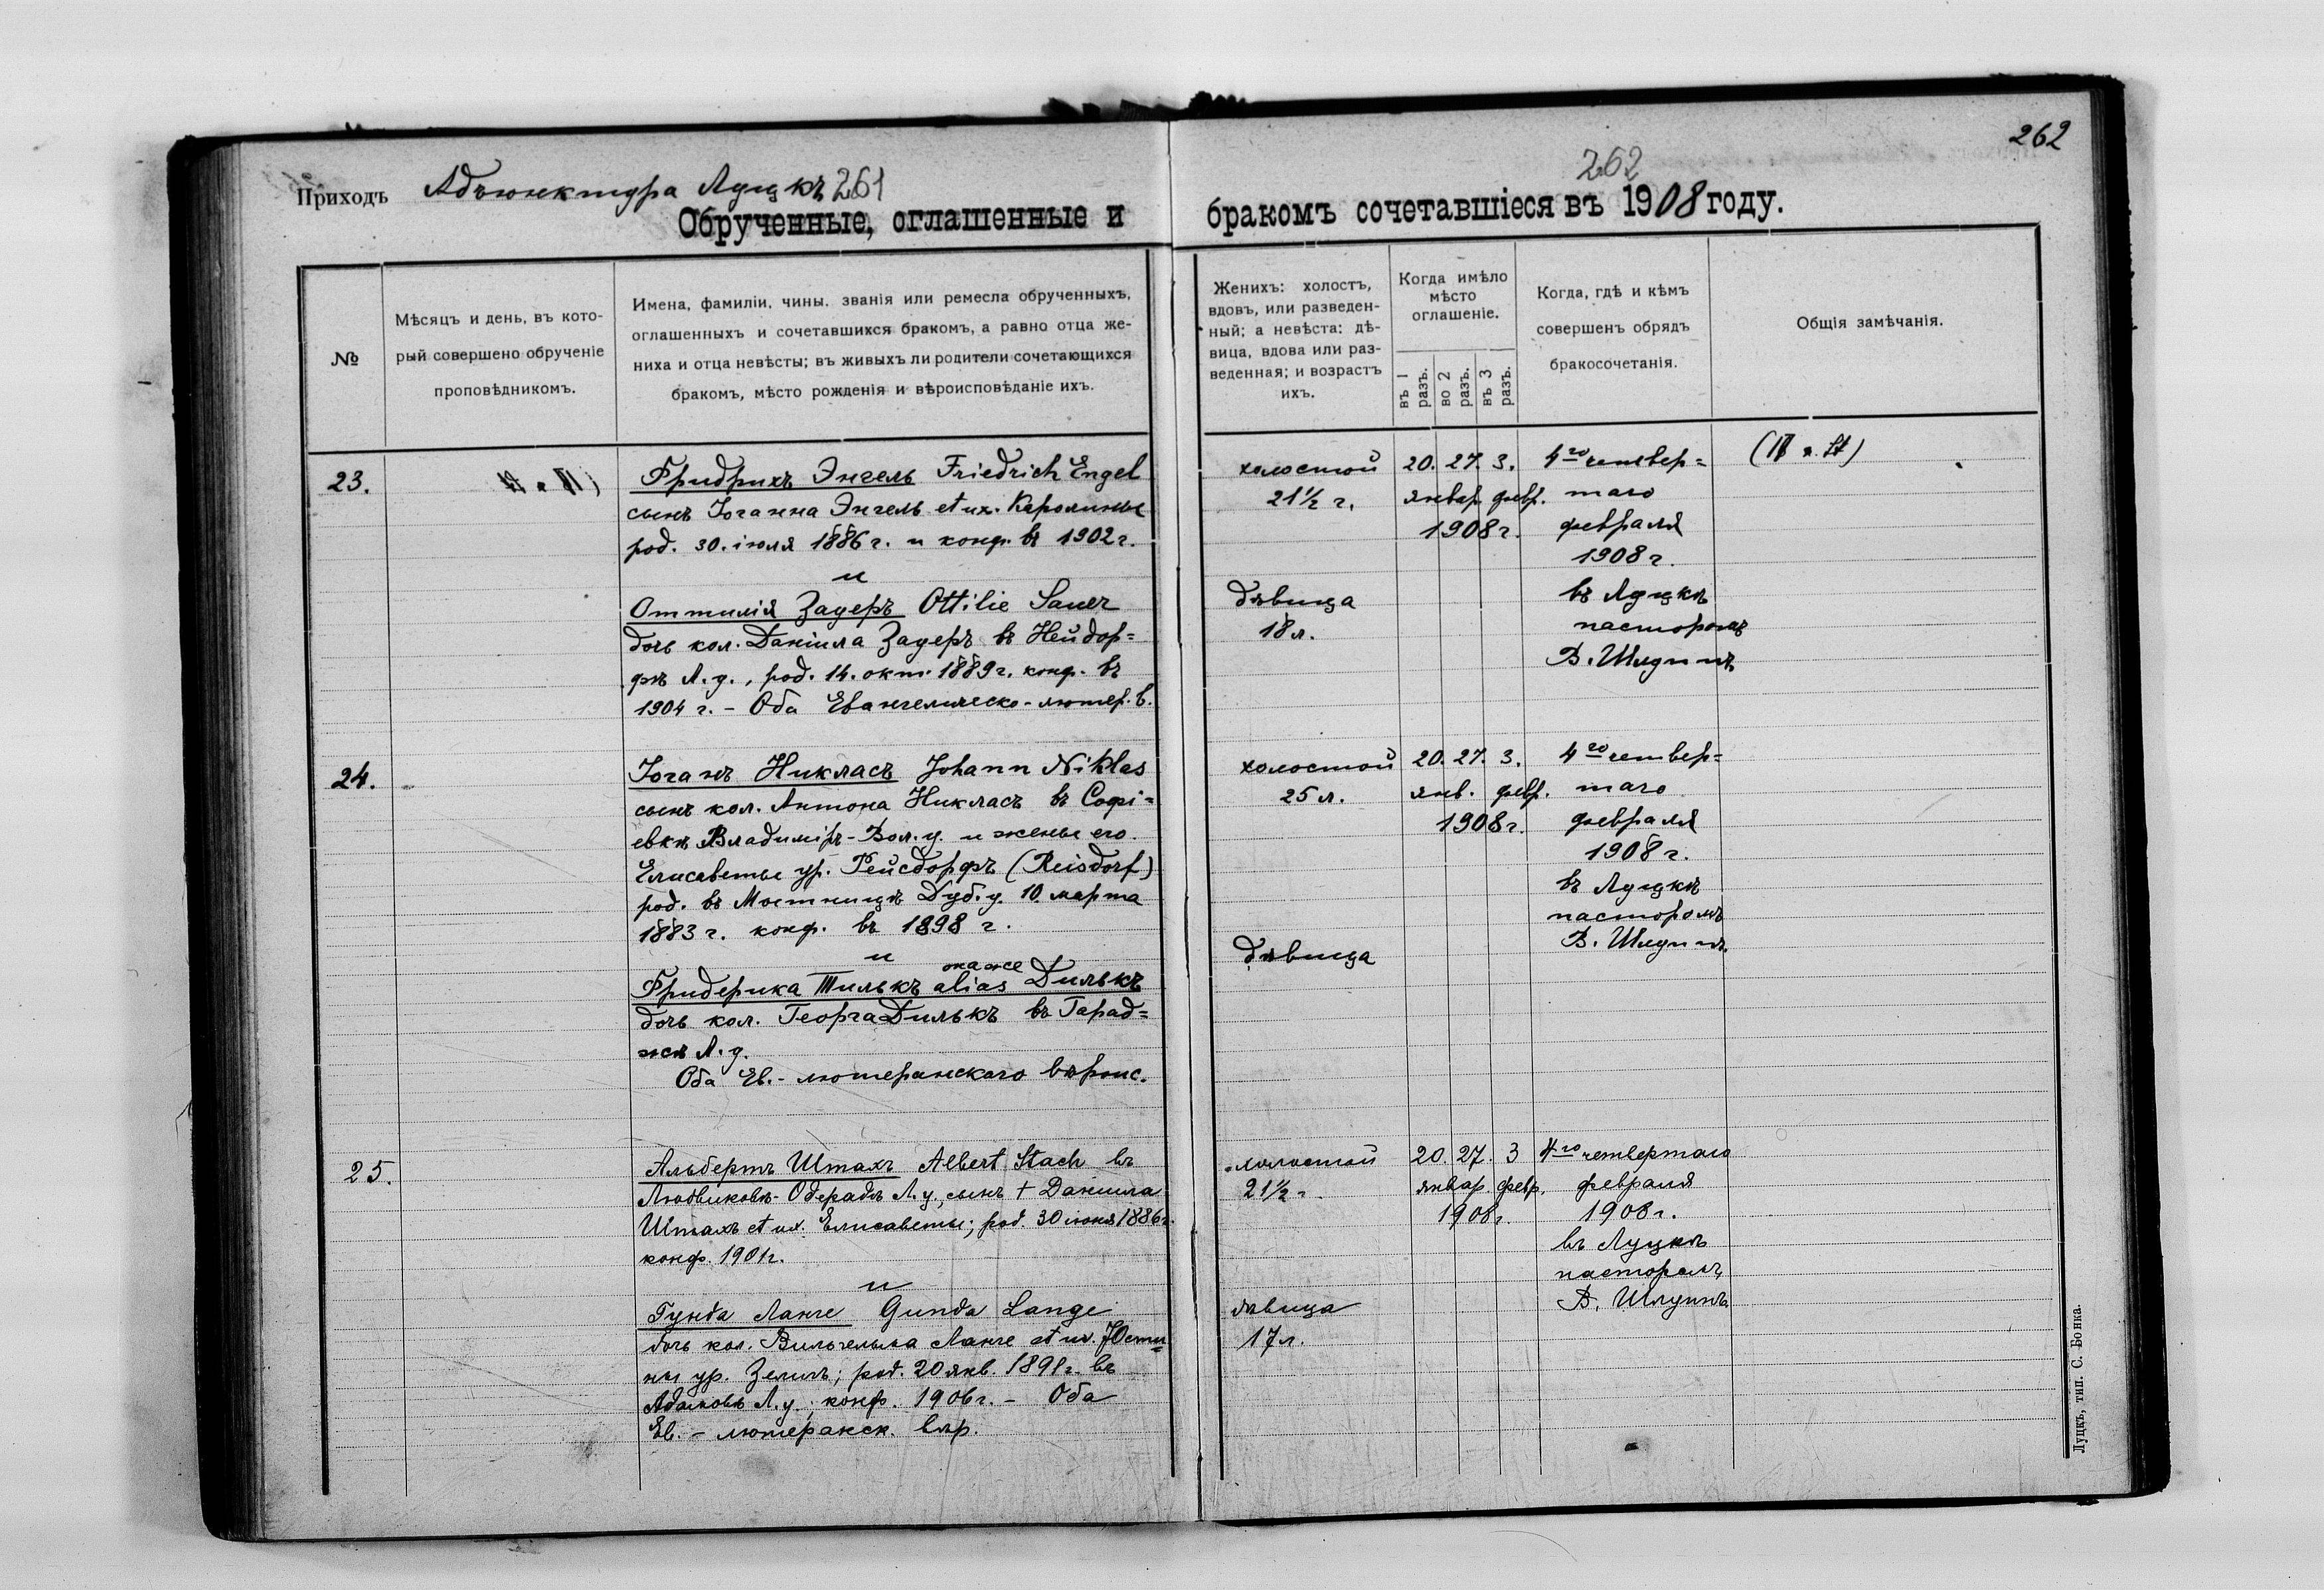 Приходъ Адъюнктура Луцкъ 261
Обрученные, оглашенные и
№
Мѣсяцъ и день, въ кото-
рый совершено обрученіе
проповѣдникомъ.
Имена, фамиліи, чины, званія или ремесла обрученныхъ,
оглашенныхъ и сочетавшихся бракомъ, а равно отца же-
ниха и отца невѣсты; въ живыхъ ли родители сочетающихся
бракомъ, мѣсто рожденія и вѣроисповѣданіе ихъ.
23.
Фридрихъ Энгель Friedrich Engel
сынъ Іоганна Энгель et ux. Каролины
род. 30. іюля 1886 г. и конф. въ 1902 г.
и
Оттилія Зауеръ Ottilie Sauer
дочь кол. Даніила Зауеръ въ Нейдор=
фѣ Л. у., род. 14. окт. 1889 г. конф. въ
1904 г. – Оба Евангелическо-лютер. в.
24.
Іоганъ Никласъ Johann Niklas
сынъ кол. Антона Никласъ въ Софі=
евкѣ Владимір-Вол. у. и жены его
Елисаветы ур. Рейсдорфъ (Reisdorf)
род. въ Мостницѣ Дуб. у. 10. марта
1883 г. конф. въ 1898 г.
и
она же
Фридерика Тилькъ alias Дилькъ
дочь кол. Георга Дилькъ въ Гарад=
жѣ Л. у.
Оба Ев.-лютеранскаго вѣроис.
25.
Альбертъ Штахъ Albert Stach въ
Людвиковѣ-Одерадѣ Л. у., сынъ † Даніила
Штахъ et ux. Елисаветы; род. 30 іюня 1886 г.
конф. 1901 г.
и
Гунда Ланге Gunda Lange
дочь кол. Вильгельма Ланге et ux. Юсти=
ны ур. Зелигъ; род. 20 янв. 1891 г. въ
Адамовѣ Л. у., конф. 1906 г. – Оба
Ев. – лютеранск. вѣр.
262
262
бракомъ сочетавшіеся въ 1908 году.
Женихъ: холостъ,
вдовъ, или разведен-
ный; а невѣста: дѣ-
вица, вдова или раз-
веденная; и возрастъ
ихъ.
Когда имѣло
мѣсто
оглашеніе.
въ 1
разъ.
во 2
разъ.
въ 3
разъ.
Когда, гдѣ и кѣмъ
совершенъ обрядъ
бракосочетанія.
Общія замѣчанія.
холостой 20. 27. 3. 4го четвер=
21½ г. январ. февр. таго
1908 г. февраля
1908 г.
дѣвица въ Луцкѣ
18 л. пасторомъ
В. Шлуппъ
холостой 20. 27. 3. 4го четвер=
25 л. янв. февр. таго
1908 г. февраля
1908 г.
въ Луцкѣ
пасторомъ
дѣвица В. Шлуппъ.
холостой 20. 27. 3 4го четвертаго
21½ г. январ. февр. февраля
1908 г. 1908 г.
въ Луцкѣ
пасторомъ
дѣвица В. Шлуппъ.
17 л.
Луцкъ, тип. С. Бонка.